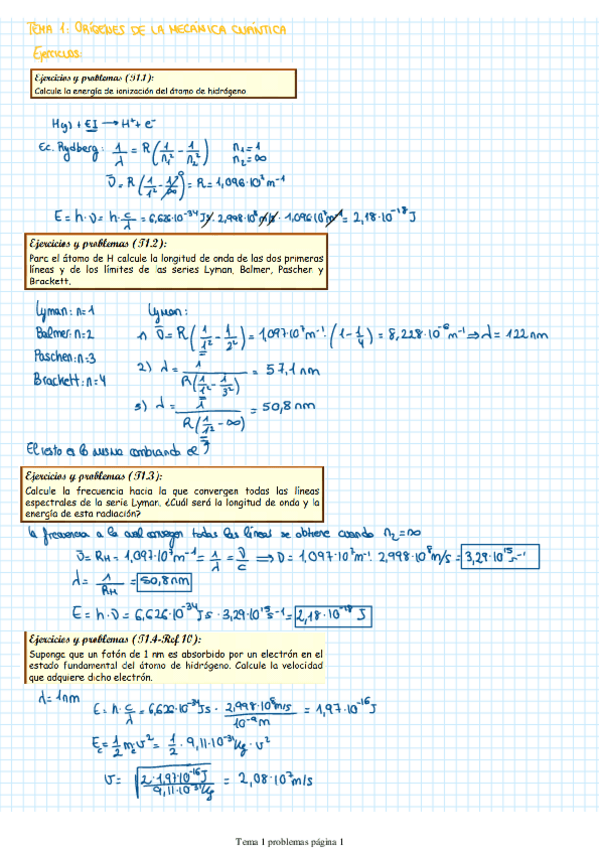 TEMA 1: ORÍGENES DE LA MECÁNICA CUÁNTICA
Ejercicios:
Ejercicios y problemas (T1.1):
Calcule la energía de ionización del átomo de hidrógeno
H(g) + EI → H⁺ + e⁻
Ec. Rydberg: 1/λ = R(1/n₁² - 1/n₂²) n₁=1 n₂=∞
ῡ = R(1/1² - 1/∞)⁰ = R = 1,096·10⁷ m⁻¹
E = h·υ = h·c/λ = 6,626·10⁻³⁴ J·s · 2,998·10⁸ m/s · 1,096·10⁷ m⁻¹ = 2,18·10⁻¹⁸ J
Ejercicios y problemas (T1.2):
Para el átomo de H calcule la longitud de onda de las dos primeras
líneas y de los límites de las series Lyman, Balmer, Paschen y
Brackett.
Lyman: n=1 Lyman:
Balmer: n=2 1) ῡ = R(1/1² - 1/2²) = 1,097·10⁷ m⁻¹ · (1 - 1/4) = 8,228·10⁻⁶ m⁻¹ ⇒ λ = 122 nm
Paschen: n=3 2) λ = 1/R(1/1² - 1/3²) = 57,1 nm
Brackett: n=4 3) λ = 1/R(1/1² - ∞) = 50,8 nm
El resto es lo mismo cambiando el 1
Ejercicios y problemas (T1.3):
Calcule la frecuencia hacia la que convergen todas las líneas
espectrales de la serie Lyman. ¿Cuál será la longitud de onda y la
energía de esta radiación?
la frecuencia a la cual convergen todas las líneas se obtiene cuando n₂=∞
ῡ = R_H = 1,097·10⁷ m⁻¹ = 1/λ = υ/c ⇒ υ = 1,097·10⁷ m⁻¹ · 2,998·10⁸ m/s = 3,29·10¹⁵ s⁻¹
λ = 1/R_H = 50,8 nm
E = h·υ = 6,626·10⁻³⁴ J·s · 3,29·10¹⁵ s⁻¹ = 2,18·10⁻¹⁸ J
Ejercicios y problemas (T1.4-Ref.10):
Suponga que un fotón de 1 nm es absorbido por un electrón en el
estado fundamental del átomo de hidrógeno. Calcule la velocidad
que adquiere dicho electrón.
λ = 1nm
E = h·c/λ = 6,626·10⁻³⁴ J·s · 2,998·10⁸ m/s / 10⁻⁹ m = 1,97·10⁻¹⁶ J
E_c = 1/2 m_e v² = 1/2 · 9,11·10⁻³¹ kg · v²
v = √(2·1,97·10⁻¹⁶ J / 9,11·10⁻³¹ kg) = 2,08·10⁷ m/s
Tema 1 problemas página 1